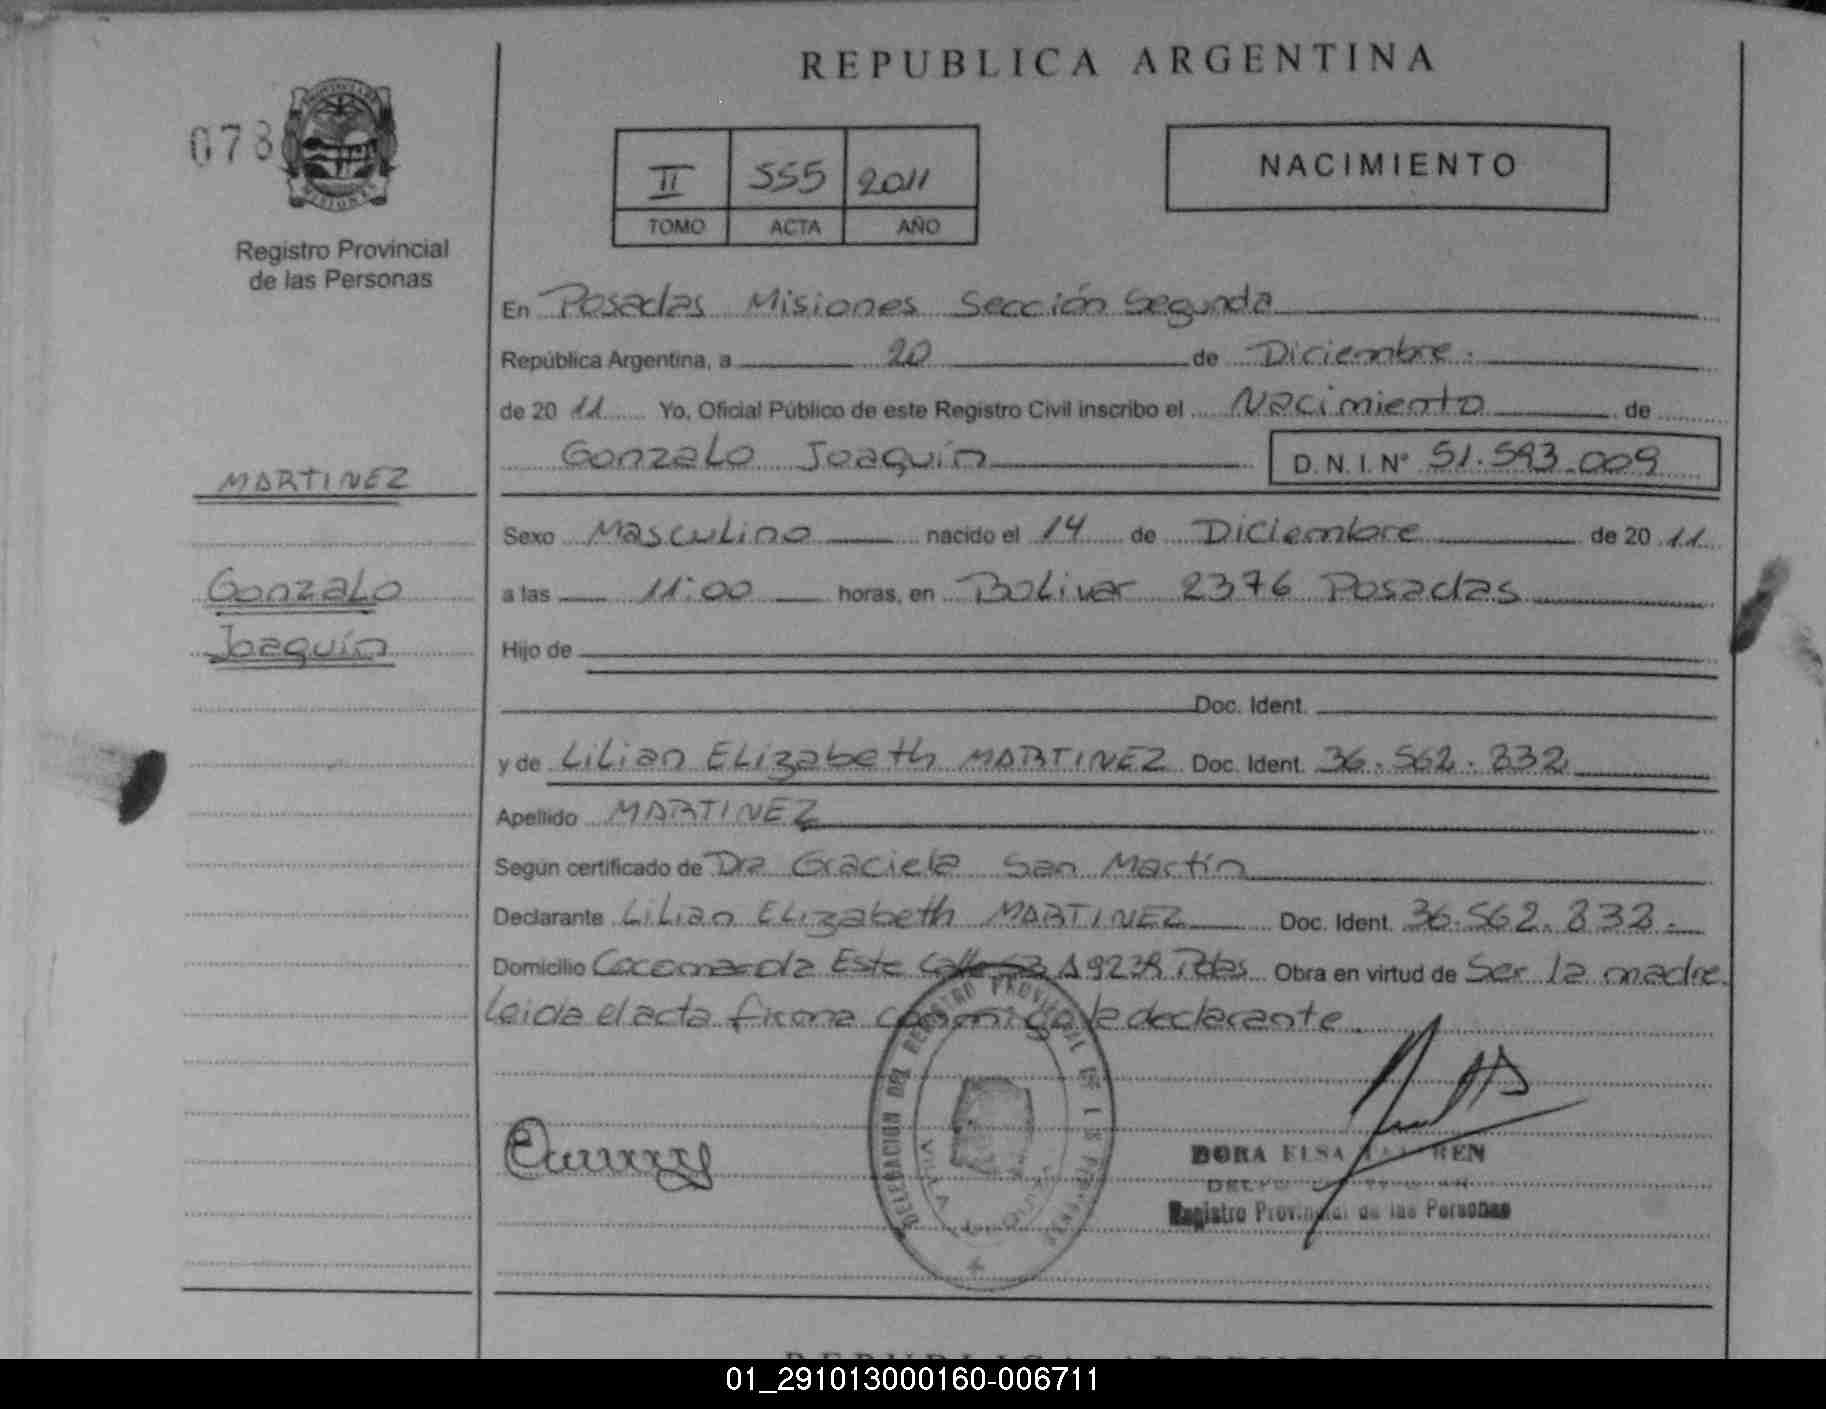 REPUBLICA ARGENTINA
078
PROVINCIA DE MISIONES
Registro Provincial
de las Personas
II 555 2011
TOMO ACTA AÑO
NACIMIENTO
En Posadas Misiones Sección Segunda
República Argentina, a 20 de Diciembre.
de 20 11 Yo, Oficial Público de este Registro Civil inscribo el Nacimiento de
Gonzalo Joaquín D.N.I. Nº 51.593.009
MARTINEZ
Gonzalo
Joaquín
Sexo Masculino nacido el 14 de Diciembre de 20 11
a las 11:00 horas, en Bolivar 2376 Posadas
Hijo de
Doc. Ident.
y de Lilian Elizabeth MARTINEZ Doc. Ident. 36.562.832
Apellido MARTINEZ
Según certificado de Dra Graciela San Martín
Declarante Lilian Elizabeth MARTINEZ Doc. Ident. 36.562.832.
Domicilio Cocomarola Este Pdas. Obra en virtud de Ser la madre.
Leida el acta firma conmigo la declarante.
DELEGACION DEL REGISTRO PROVINCIAL DE LAS PERSONAS
VILLA
DORA ELSA
Registro Provincial de las Personas
REPUBLICA ARGENTINA
01_291013000160-006711